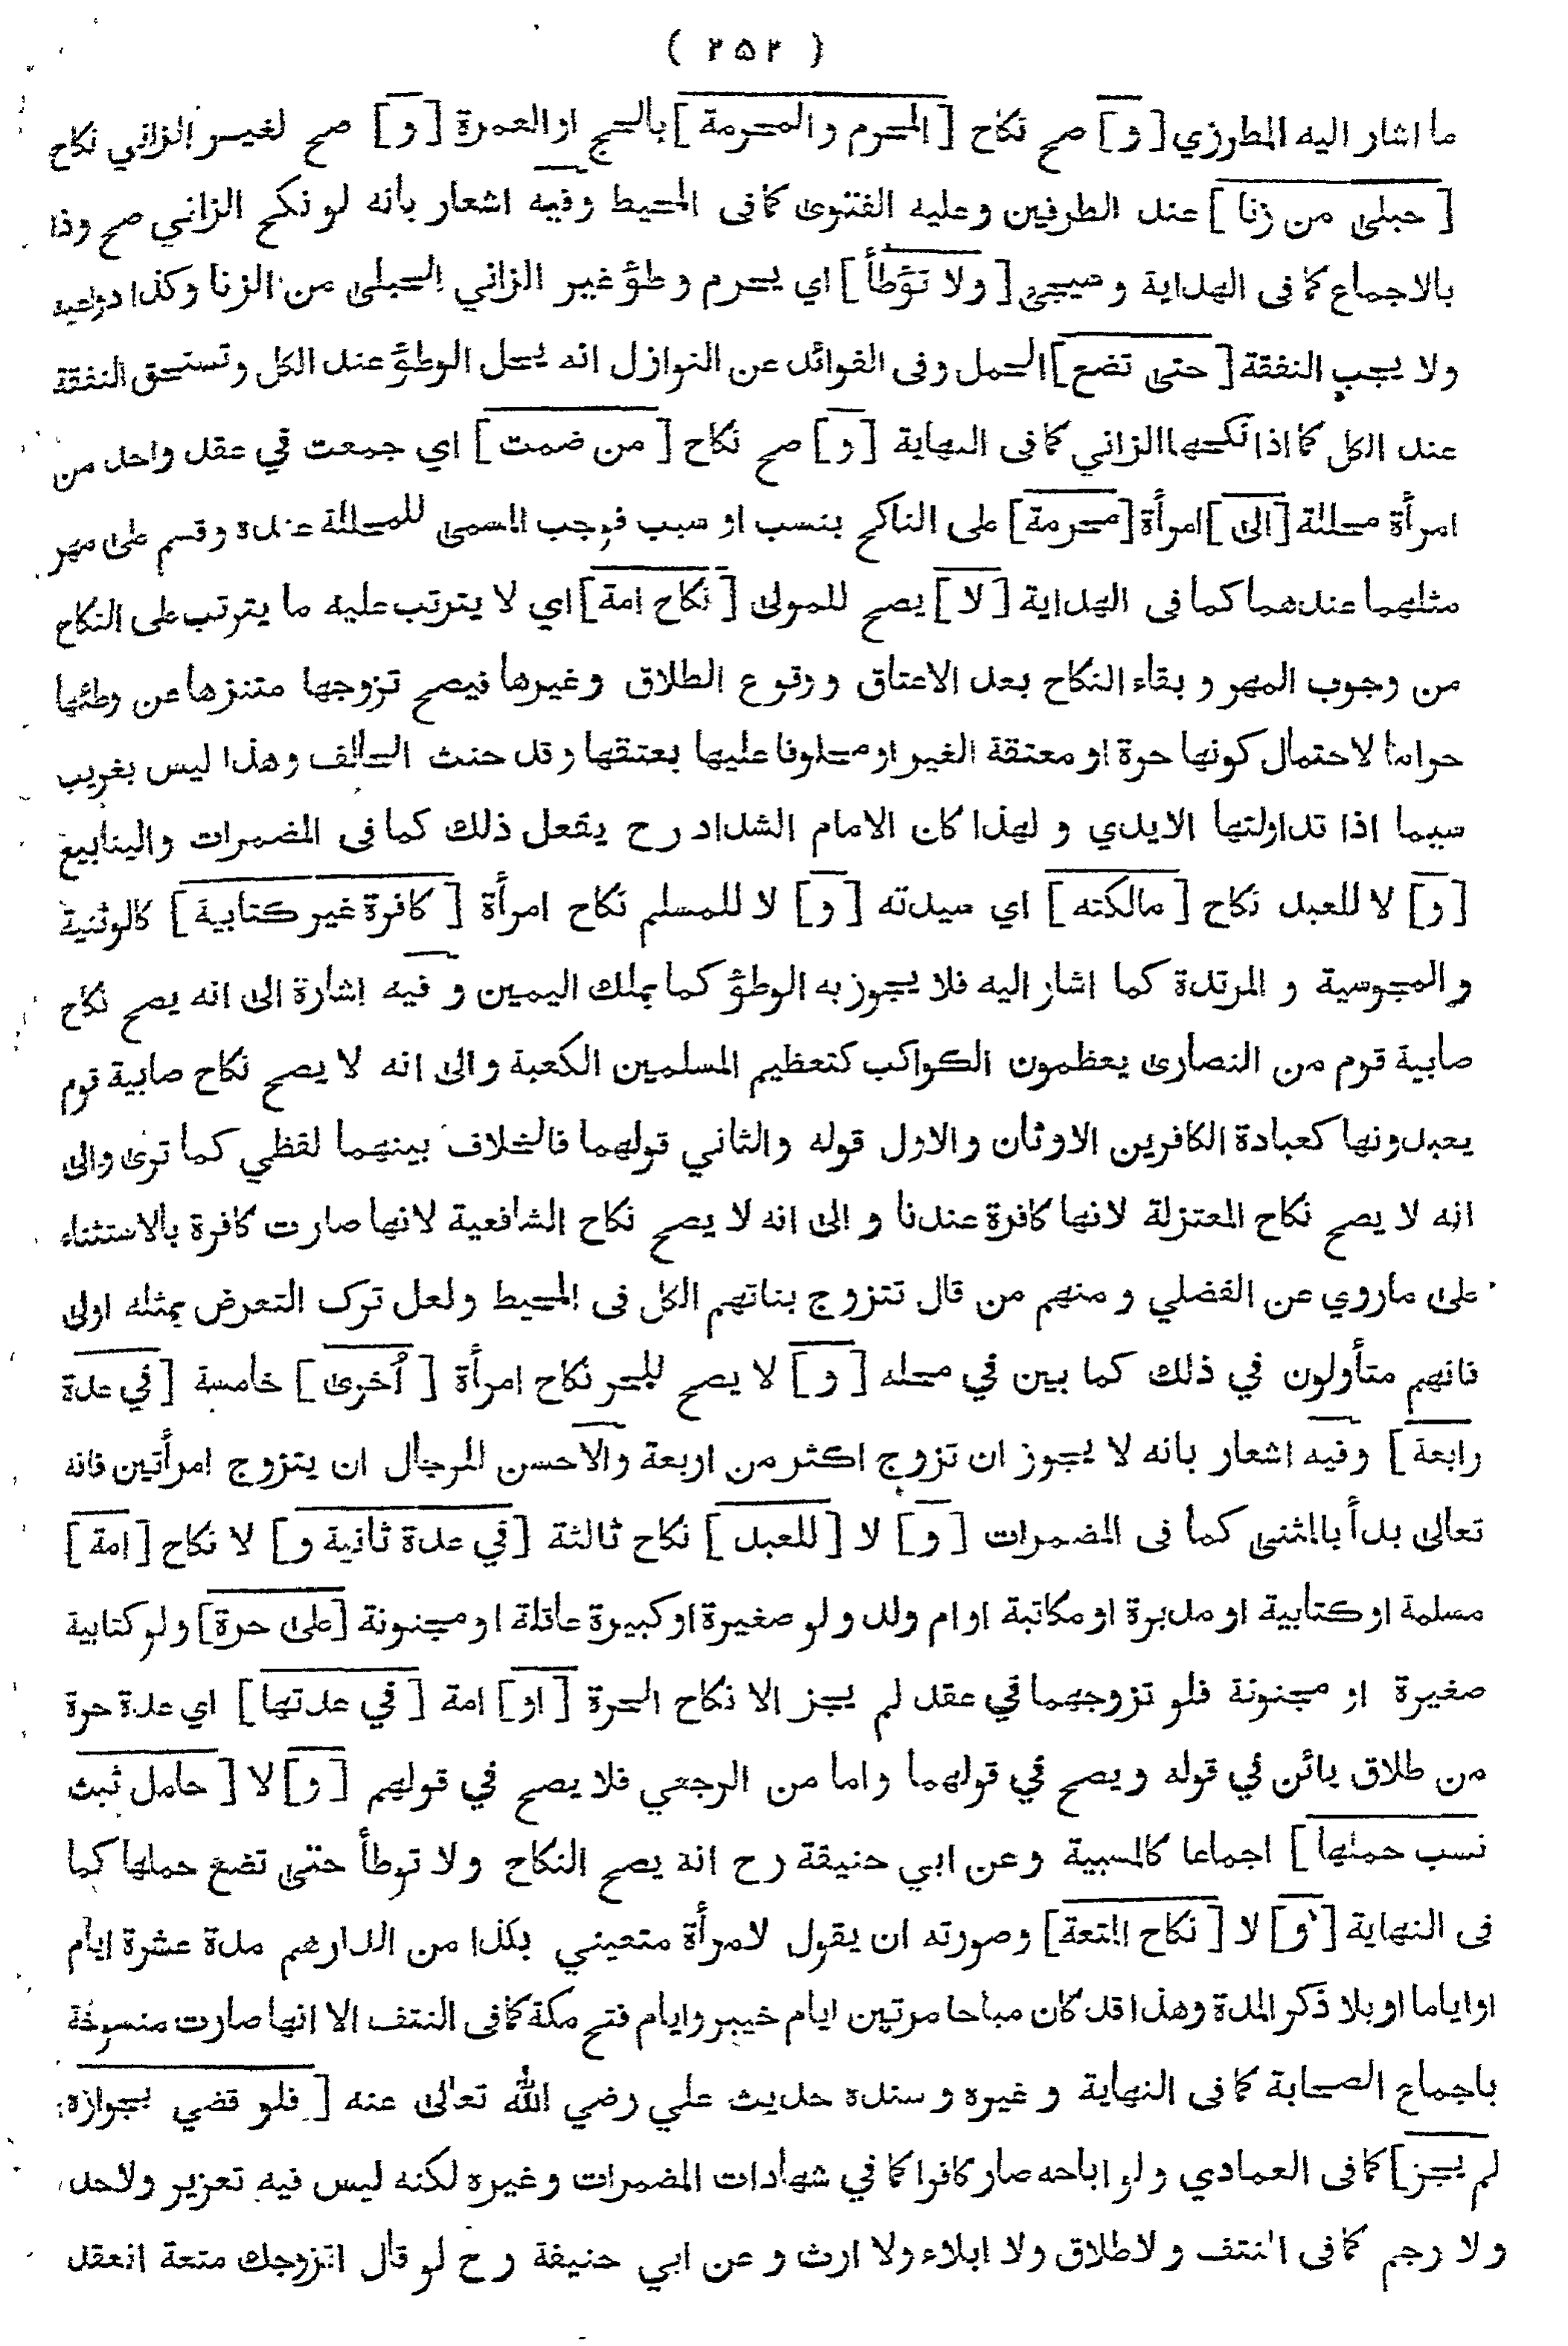 ( ٢٥٢ )
ما اشار اليه المطرزي [و] صح نكاح [المحرم والمحرمة] بالحج او العمرة [و] صح لغير الزاني نكاح
[حبلى من زنا] عند الطرفين وعليه الفتوى كما فى المحيط وفيه اشعار بأنه لو نكح الزاني صح وذا
بالاجماع كما فى الهداية وسيجئ [ولا تؤطأ] اي يحرم وطؤ غير الزاني الحبلى من الزنا وكذا دواعيه
ولا يجب النفقة [حتى تضع] الحمل وفى الفوائد عن النوازل انه يحل الوطؤ عند الكل وتستحق النفقة
عند الكل كما اذا نكحها الزاني كما فى النهاية [و] صح نكاح [من ضمت] اي جمعت في عقد واحد من
امرأة محللة [الى] امرأة [محرمة] على الناكح بنسب او سبب فوجب المسمى للمحللة عنده وقسم على مهر
مثلهما عندهما كما فى الهداية [لا] يصح للمولى [نكاح امة] اي لا يترتب عليه ما يترتب على النكاح
من وجوب المهر وبقاء النكاح بعد الاعتاق ووقوع الطلاق وغيرها فيصح تزوجها متنزها عن وطئها
حراما لاحتمال كونها حرة او معتقة الغير او محلوفا عليها بعتقها وقد حنث الحالف وهذا ليس بغريب
سيما اذا تداولتها الايدي ولهذا كان الامام الشداد رح يفعل ذلك كما فى المضمرات والينابيع
[و] لا للعبد نكاح [مالكته] اي سيدته [و] لا للمسلم نكاح امرأة [كافرة غير كتابية] كالوثنية
والمجوسية والمرتدة كما اشار اليه فلا يجوز به الوطؤ كما بملك اليمين وفيه اشارة الى انه يصح نكاح
صابية قوم من النصارى يعظمون الكواكب كتعظيم المسلمين الكعبة والى انه لا يصح نكاح صابية قوم
يعبدونها كعبادة الكافرين الاوثان والاول قوله والثاني قولهما فالخلاف بينهما لفظي كما ترى والى
انه لا يصح نكاح المعتزلة لانها كافرة عندنا والى انه لا يصح نكاح الشافعية لانها صارت كافرة بالاستثناء
على ماروي عن الفضلي ومنهم من قال تتزوج بناتهم الكل فى المحيط ولعل ترك التعرض بمثله اولى
فانهم متأولون في ذلك كما بين في محله [و] لا يصح للحر نكاح امرأة [أخرى] خامسة [في عدة
رابعة] وفيه اشعار بانه لا يجوز ان تزوج اكثر من اربعة والاحسن للرجال ان يتزوج امرأتين فانه
تعالى بدأ بالمثنى كما فى المضمرات [و] لا [للعبد] نكاح ثالثة [في عدة ثانية و] لا نكاح [امة]
مسلمة او كتابية او مدبرة او مكاتبة او ام ولد ولو صغيرة او كبيرة عاقلة او مجنونة [على حرة] ولو كتابية
صغيرة او مجنونة فلو تزوجهما في عقد لم يجز الا نكاح الحرة [او] امة [في عدتها] اي عدة حرة
من طلاق بائن في قوله ويصح في قولهما واما من الرجعي فلا يصح في قولهم [و] لا [حامل ثبت
نسب حملها] اجماعا كالمسبية وعن ابي حنيفة رح انه يصح النكاح ولا توطأ حتى تضع حملها كما
فى النهاية [و] لا [نكاح المتعة] وصورته ان يقول لامرأة متعيني بكذا من الدراهم مدة عشرة ايام
او اياما او بلا ذكر المدة وهذا قد كان مباحا مرتين ايام خيبر وايام فتح مكة كما فى النتف الا انها صارت منسوخة
باجماع الصحابة كما فى النهاية وغيره وسنده حديث علي رضي الله تعالى عنه [فلو قضي بجوازه
لم يجز] كما فى العمادي ولو اباحه صار كافرا كما في شهادات المضمرات وغيره لكنه ليس فيه تعزير ولاحد
ولا رجم كما فى النتف ولاطلاق ولا ايلاء ولا ارث وعن ابي حنيفة رح لو قال اتزوجك متعة انعقد